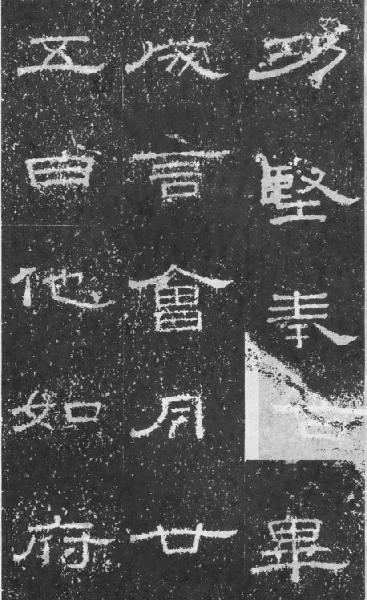 功堅奉畢
成言會月廿
五日他如府